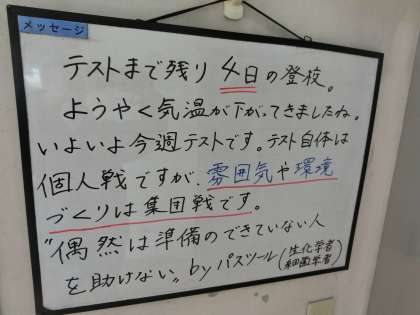 メッセージ
テストまで残り4日の登校。
ようやく気温が下がってきましたね。
いよいよ今週テストです。テスト自体は
個人戦ですが、雰囲気や環境
づくりは集団戦です。
"偶然は準備のできていない人
を助けない〟byパスツール(生化学者
細菌学者)